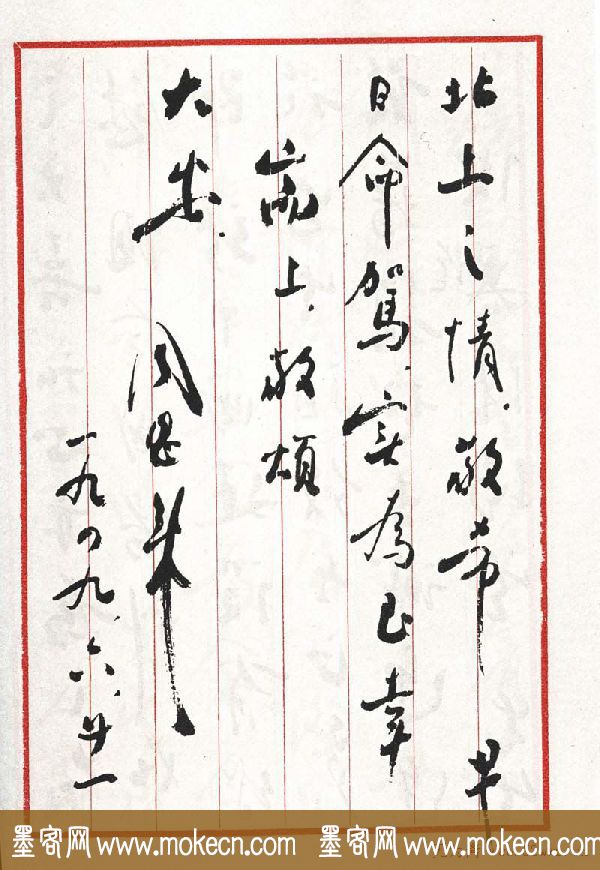 北上之情.敬希早
日命駕.实为至幸
耑上.敬颂
大安.
周恩来
一九四九.六.廿一
墨客网 www.mokecn.com 墨客网 www.mokecn.com